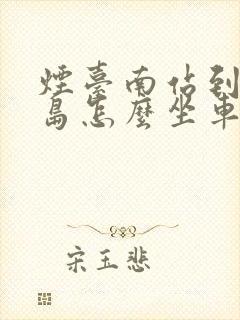 煙臺南佔到
島怎麼坐車
宋玉悲